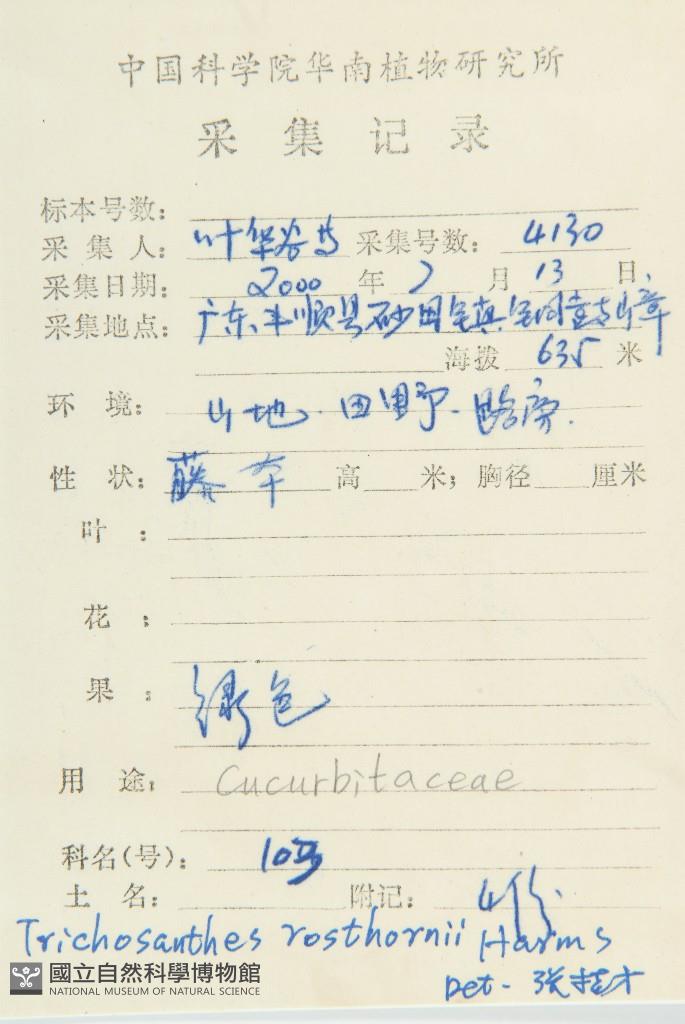 中国科学院华南植物研究所
采集记录
标本号数:
采集人: 叶华谷 采集号数: 4130
采集日期: 2000 年 7 月 13 日
采集地点: 广东丰顺县砂田镇
海拨 635 米
环境: 山地.田野.路旁.
性状: 藤本 高 米; 胸径 厘米
叶:
花:
果: 绿色
用途: Cucurbitaceae
科名(号): 103
土名: 附记: 4份.
Trichosanthes rosthornii Harms
國立自然科學博物館
NATIONAL MUSEUM OF NATURAL SCIENCE
Det.